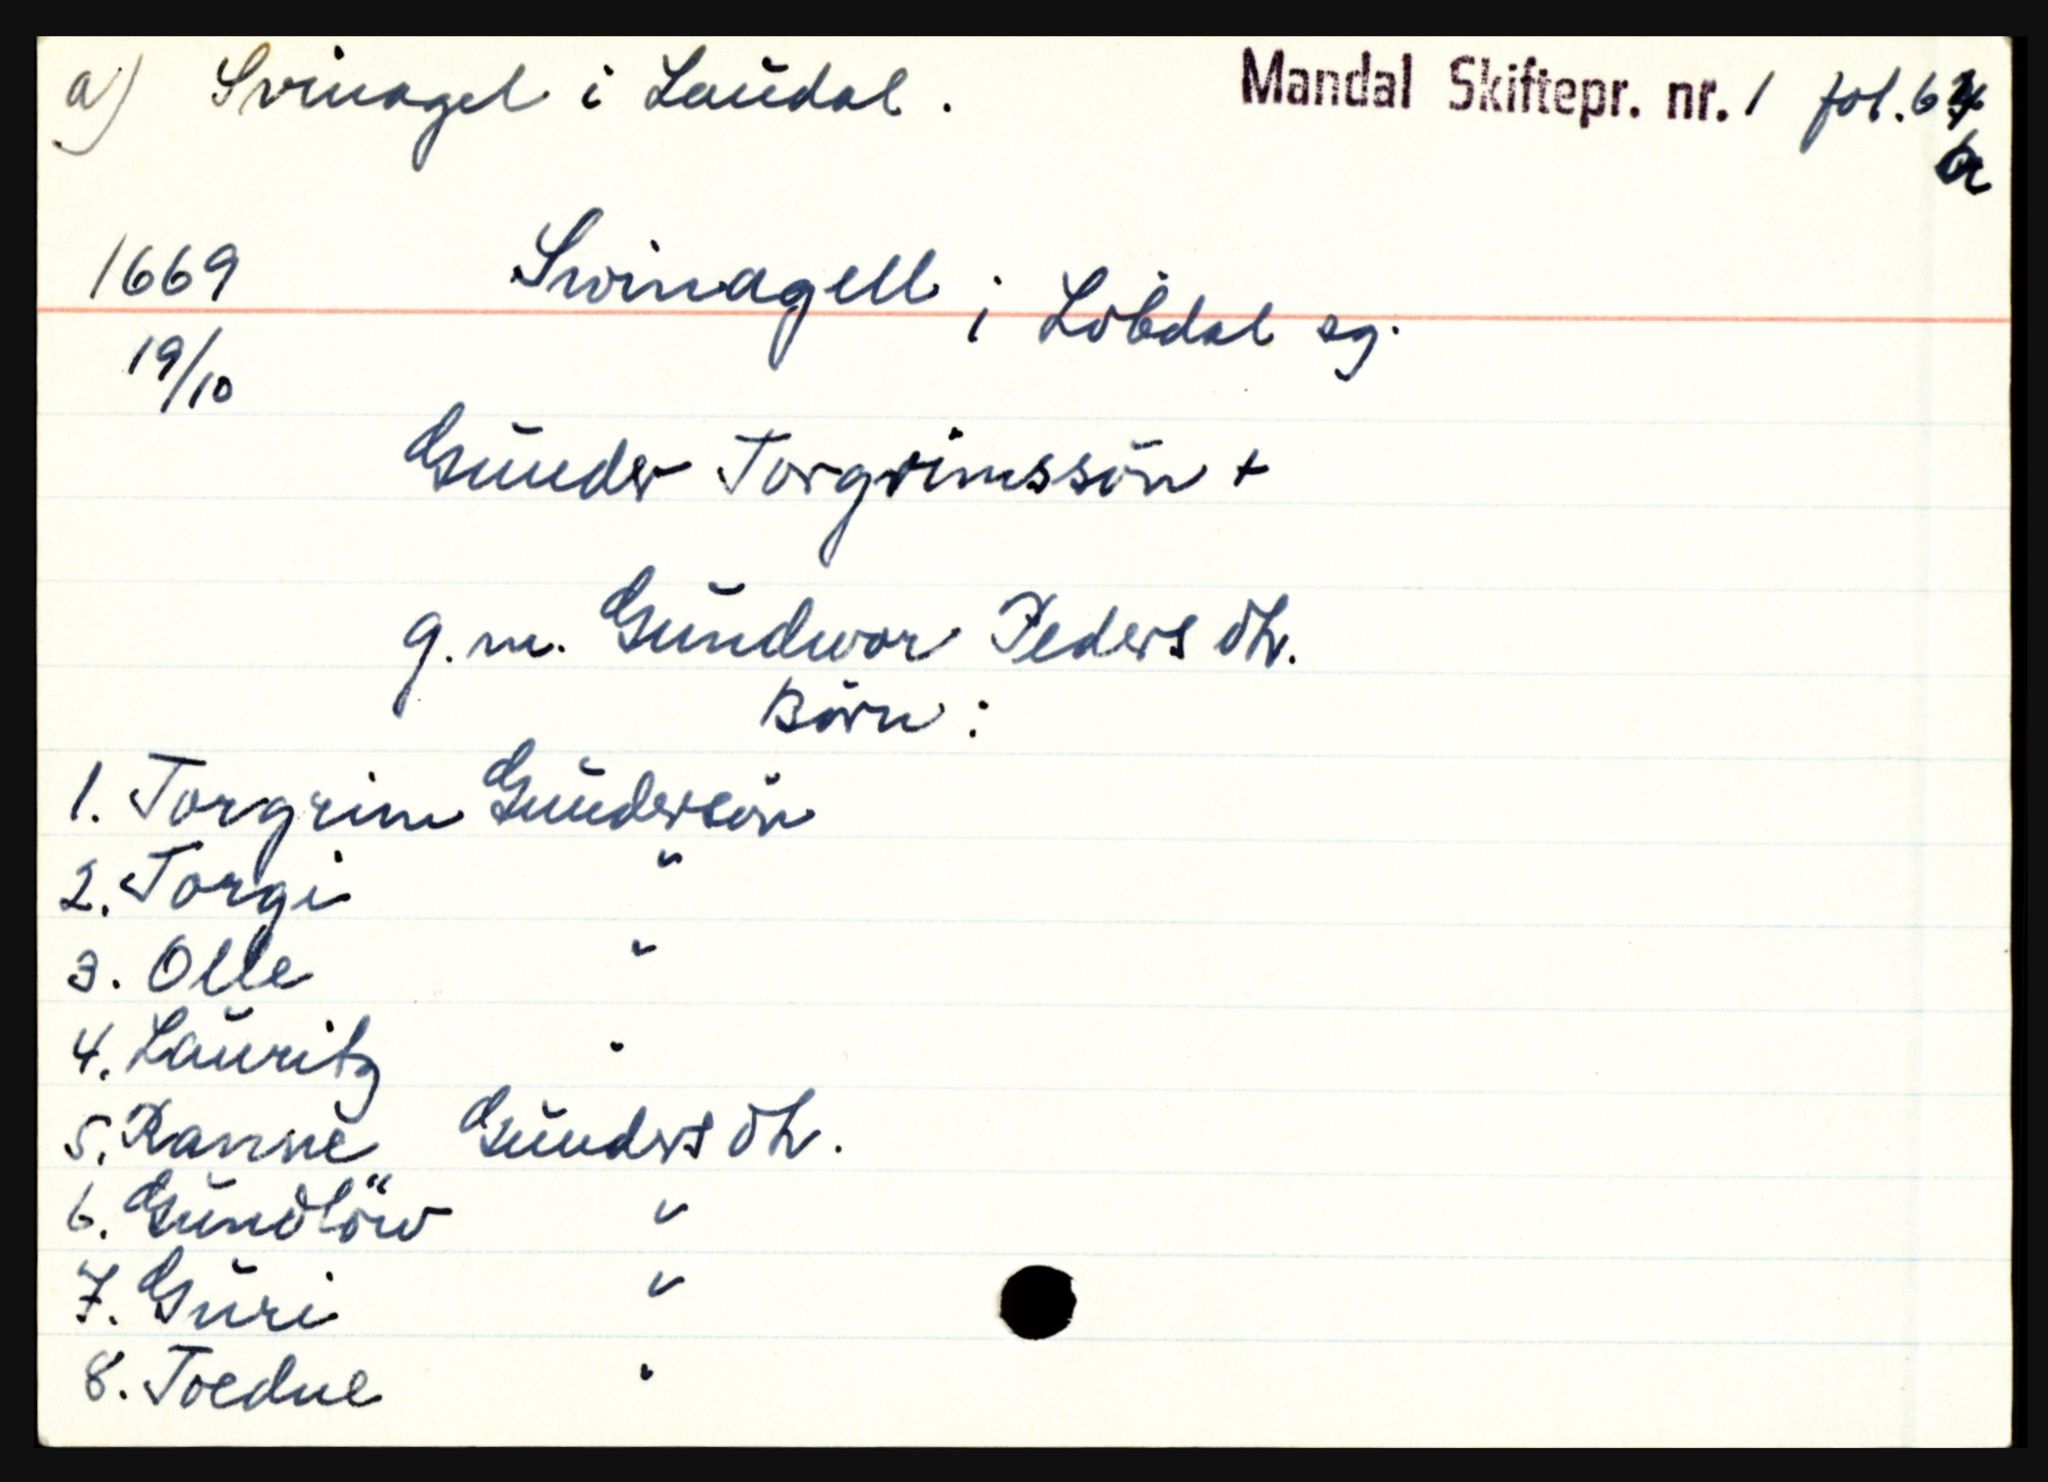 a) Svinagel i Laudal. Mandal Skiftepr. nr. 1 fol. 64
a
1669 Swinagell i Löbdal sg.
19/10
Gunder Torgrimssön +
g. m. Gundwor Peders dtr.
Börn:
1. Torgrim Gundersön
2. Torgi "
3. Olle "
4. Lauritz "
5. Ranne Gunders dtr.
6. Gundlöw "
7. Guri "
8. Toedne "